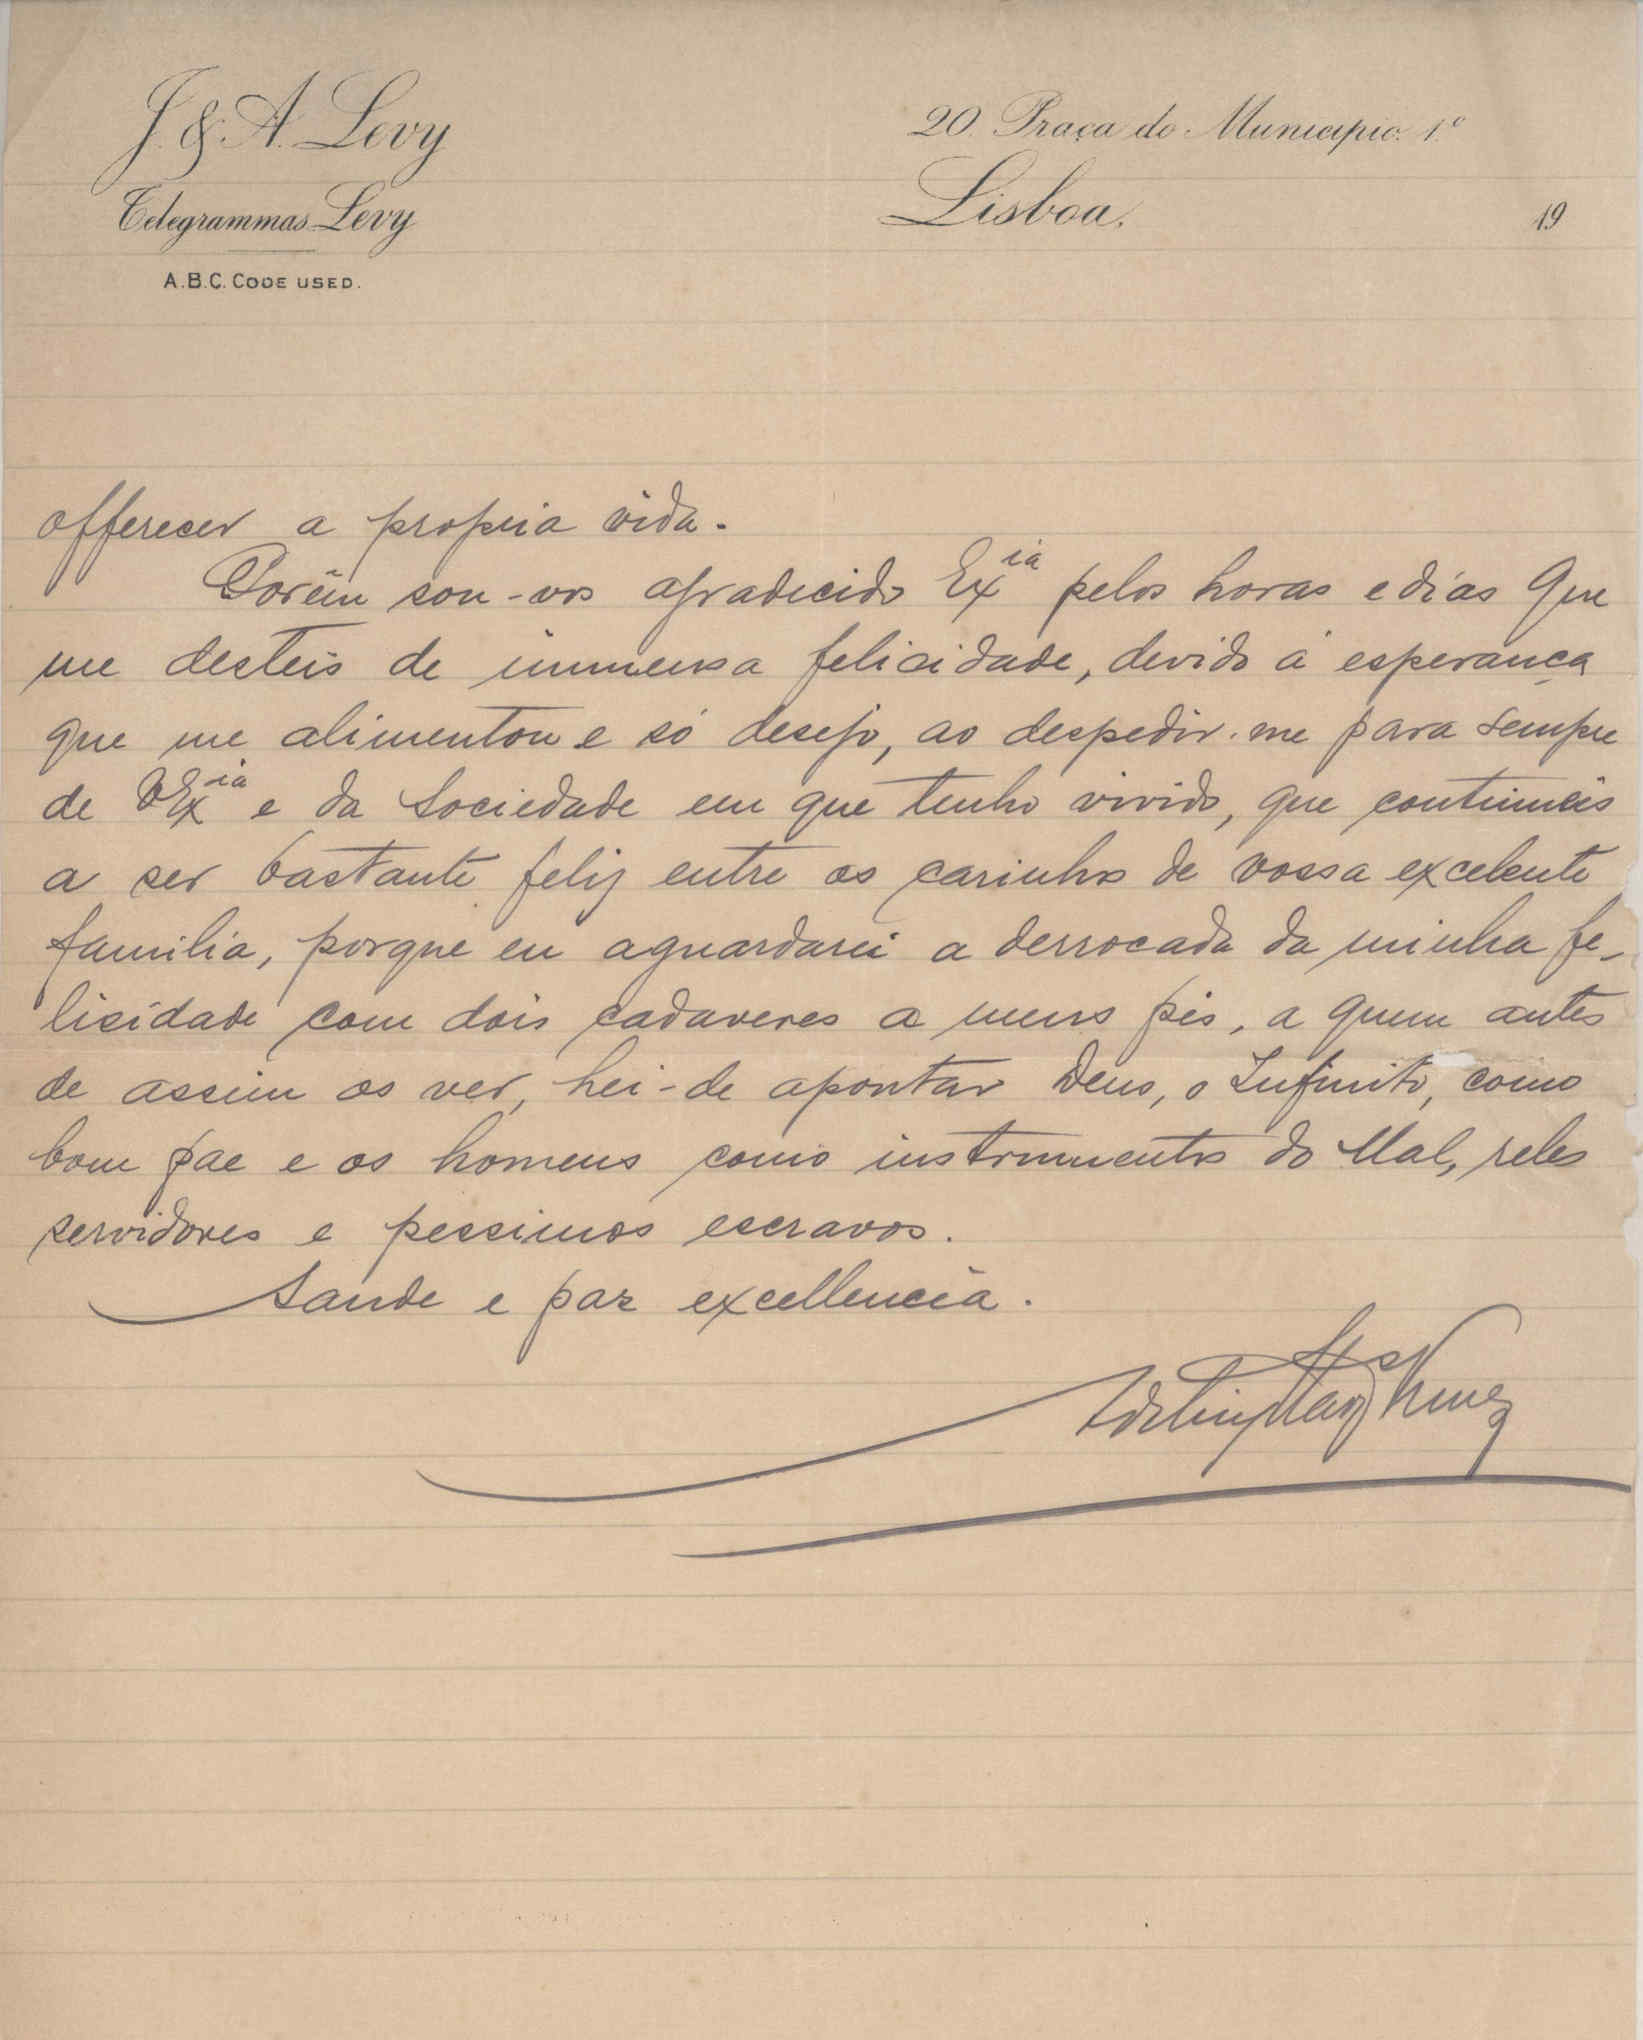 J. & A. Levy
Telegrammas Levy
A.B.C. CODE USED.
20. Praça do Municipio. 1.º
Lisboa,
19
offerecer a propria vida.
Porêm sou-vos agradecido Exia pelos horas e dias que
me desteis de immensa felicidade, devido á esperança
que me alimentou e só desejo, ao despedir-me para sempre
de VExia e da Sociedade em que tenho vivido, que continueis
a ser bastante feliz entre os carinhos de vossa excelente
familia, porque eu aguardarei a derrocada da minha fe-
licidade com dois cadaveres a meus pés, a quem antes
de assim os ver, hei-de apontar Deus, o Infinito, como
bom pae e os homens como instrumentos do Mal, reles
servidores e pessimos escravos.
Saude e paz excellencia.
Nunes